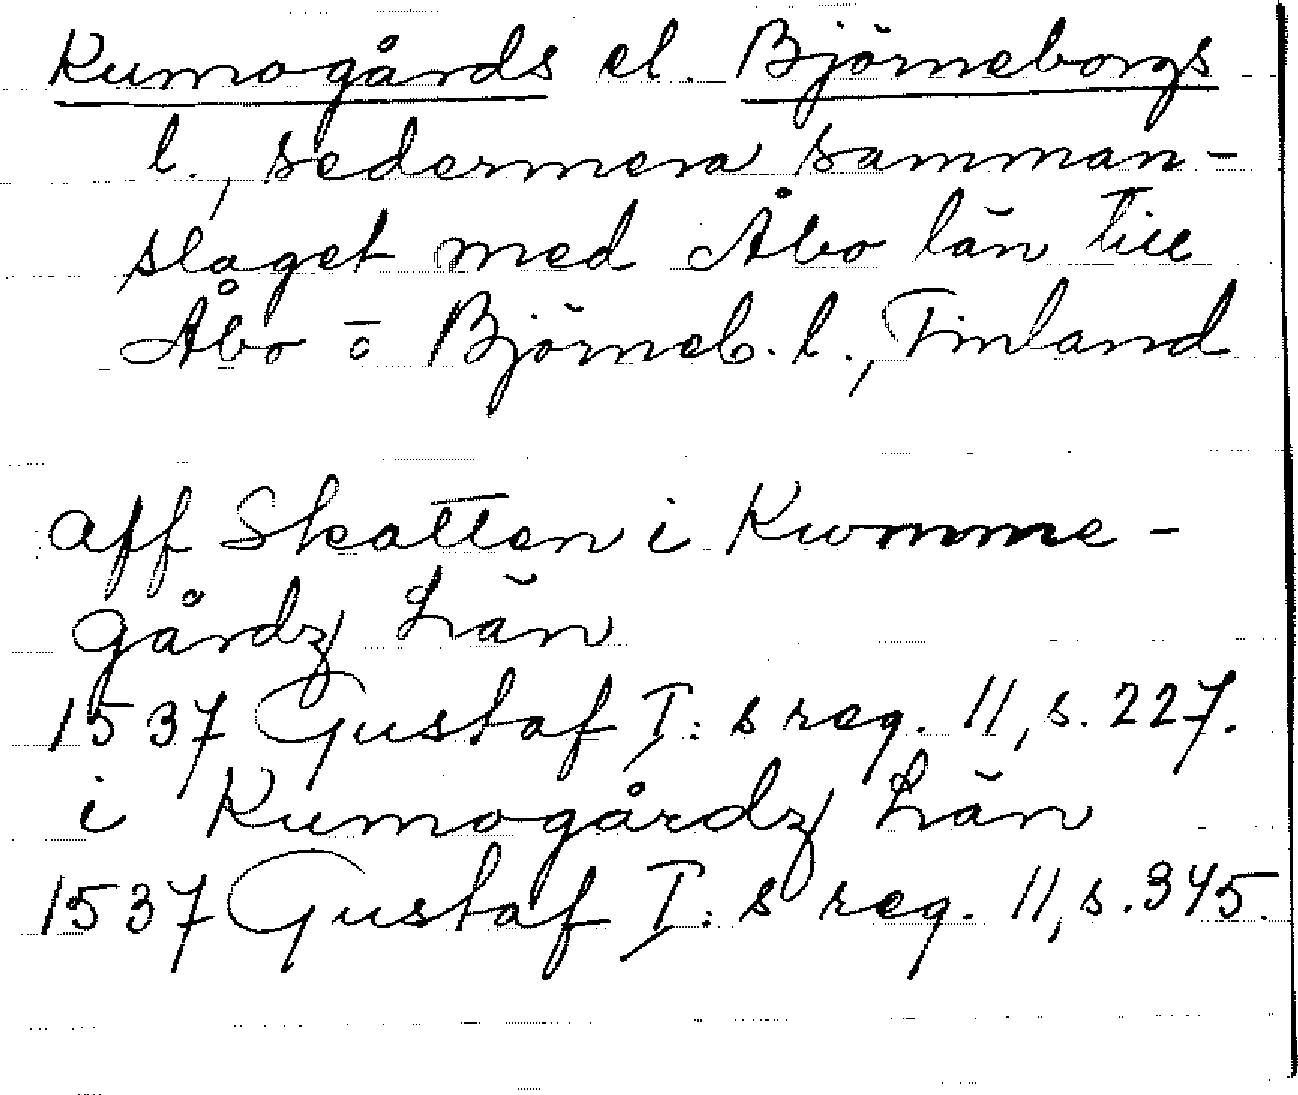 Kumogårds el. Björneborgs
l., sedermera samman-
slaget med Åbo län till
Åbo o Björneb. l., Finland
aff Skatten i Kwmme-
gårdz Län
1537 Gustaf I: s reg. 11, s. 227.
i Kumogårdz Län
1537 Gustaf I: s reg. 11, s. 345.